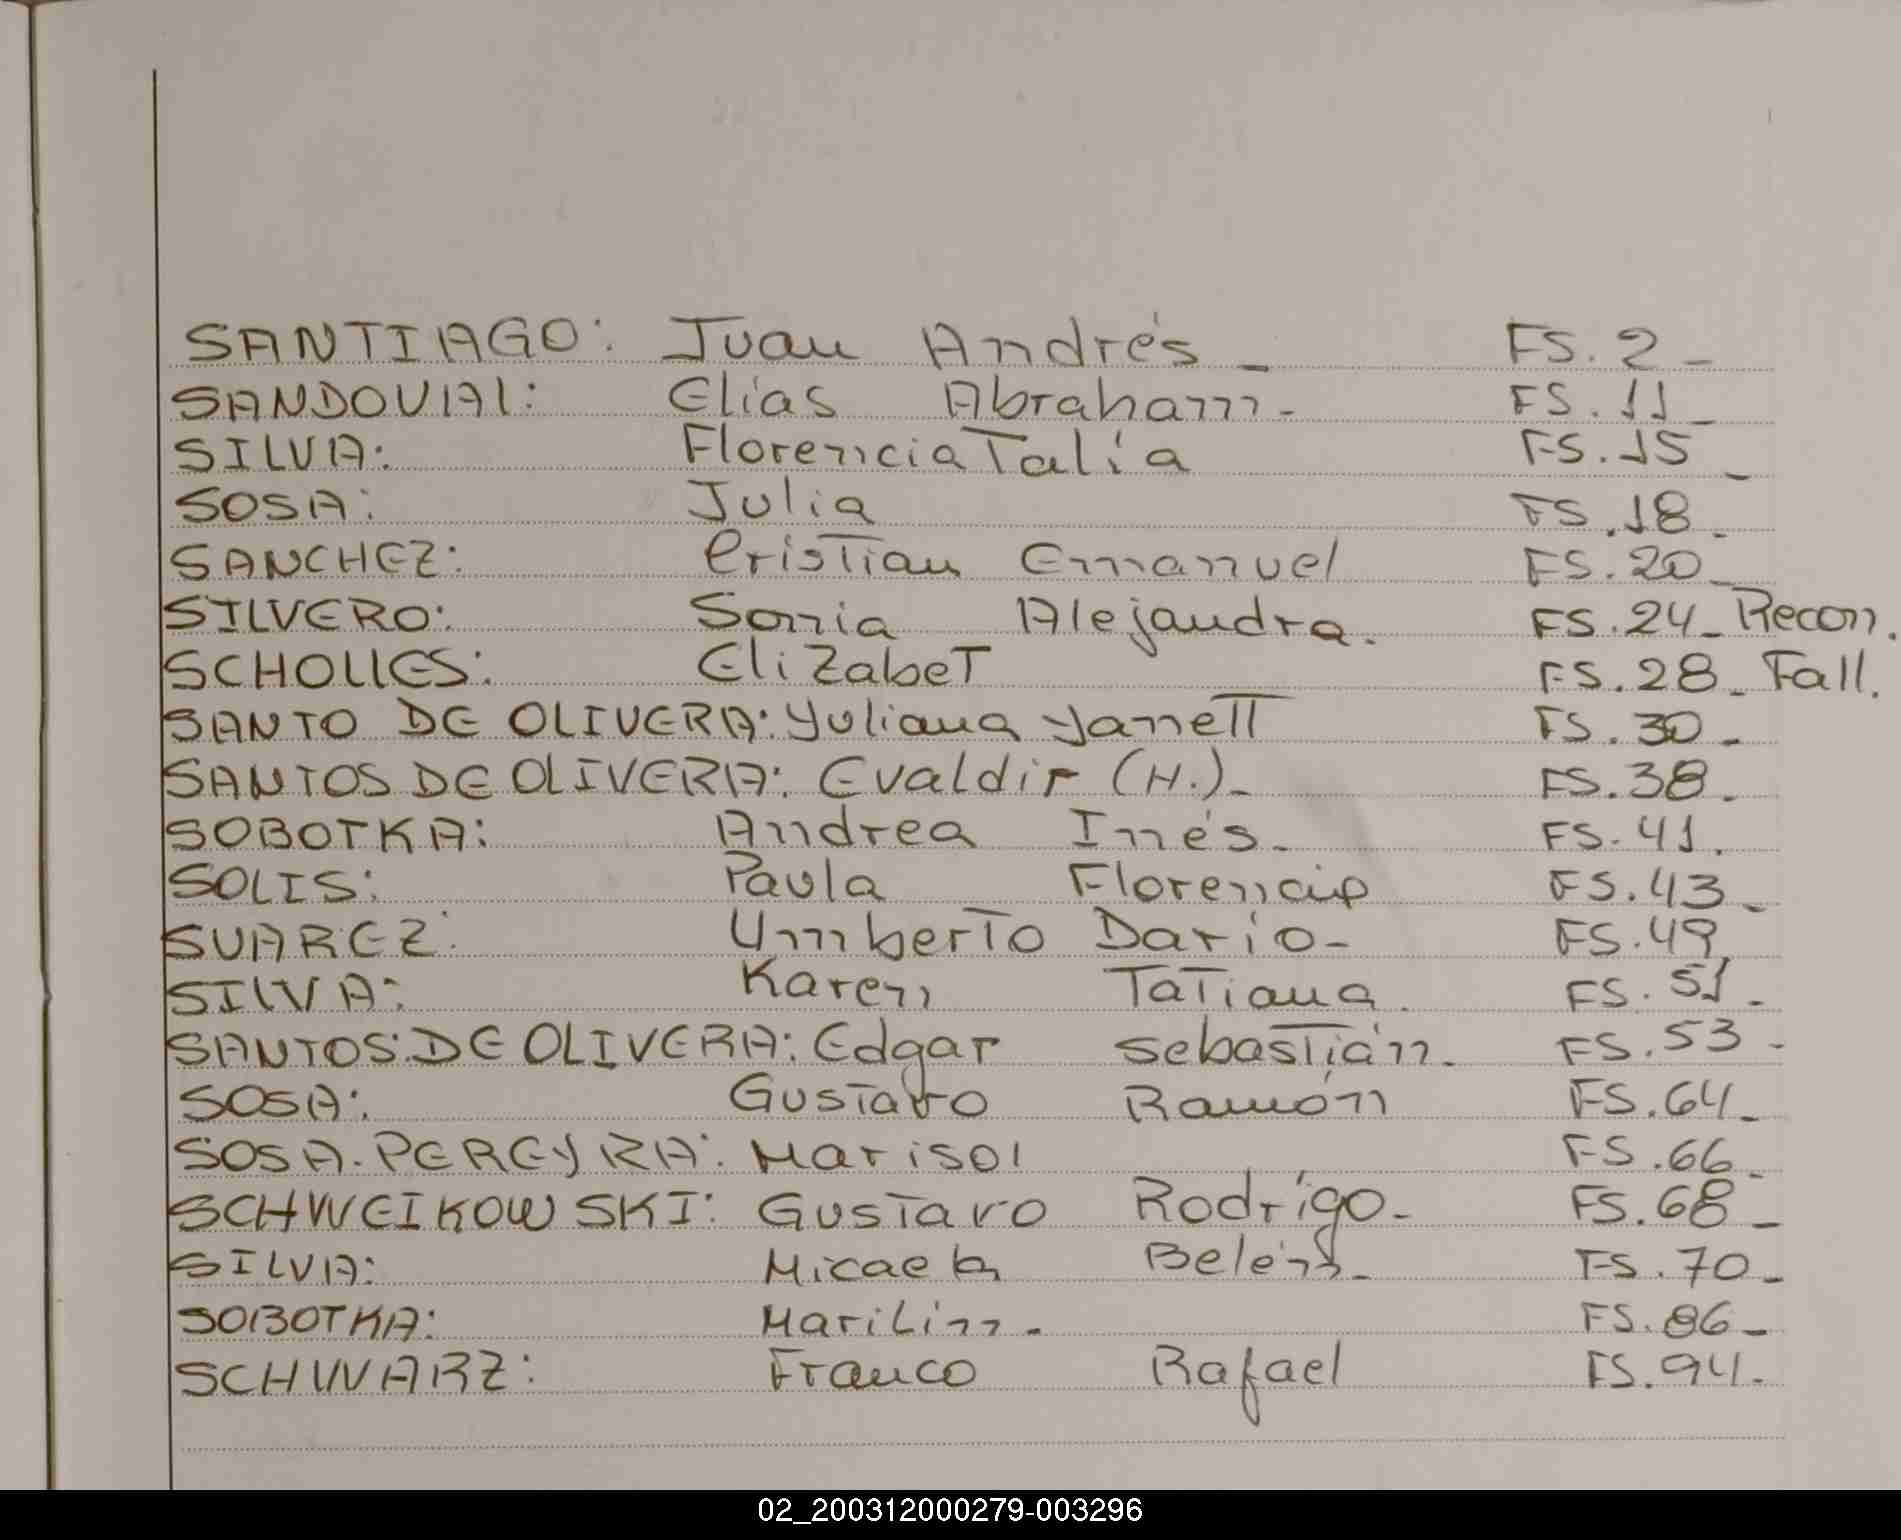 SANTIAGO: Juan Andrés - FS. 2 -
SANDOVAl: Elias Abraham. - FS. 11 -
SILVA: Florencia Talía FS. 15 -
SOSA: Julia FS. 18 -
SANCHEZ: Cristian Emanuel FS. 20 -
SILVERO: Sonia Alejandra. FS. 24 - Recon.
SCHOLLES: Elizabet FS. 28 - Fall.
SANTO DE OLIVERA: Yuliana Yanett FS. 30 -
SANTOS DE OLIVERA: Evaldir (H.) - FS. 38 -
SOBOTKA: Andrea Inés - FS. 41.
SOLIS: Paula Florencia FS. 43 -
SUAREZ: Umberto Darío - FS. 49
SILVA: Karen Tatiana. FS. 51 -
SANTOS: DE OLIVERA: Edgar Sebastián. FS. 53 -
SOSA: Gustavo Ramón FS. 64 -
SOSA. PEREYRA: Marisol FS. 66 -
SCHWEIKOWSKI: Gustavo Rodrígo - FS. 68 -
SILVA: Micaela Belén - FS. 70 -
SOBOTKA: Marilin - FS. 86 -
SCHWARZ: Franco Rafael FS. 94.
02_200312000279-003296